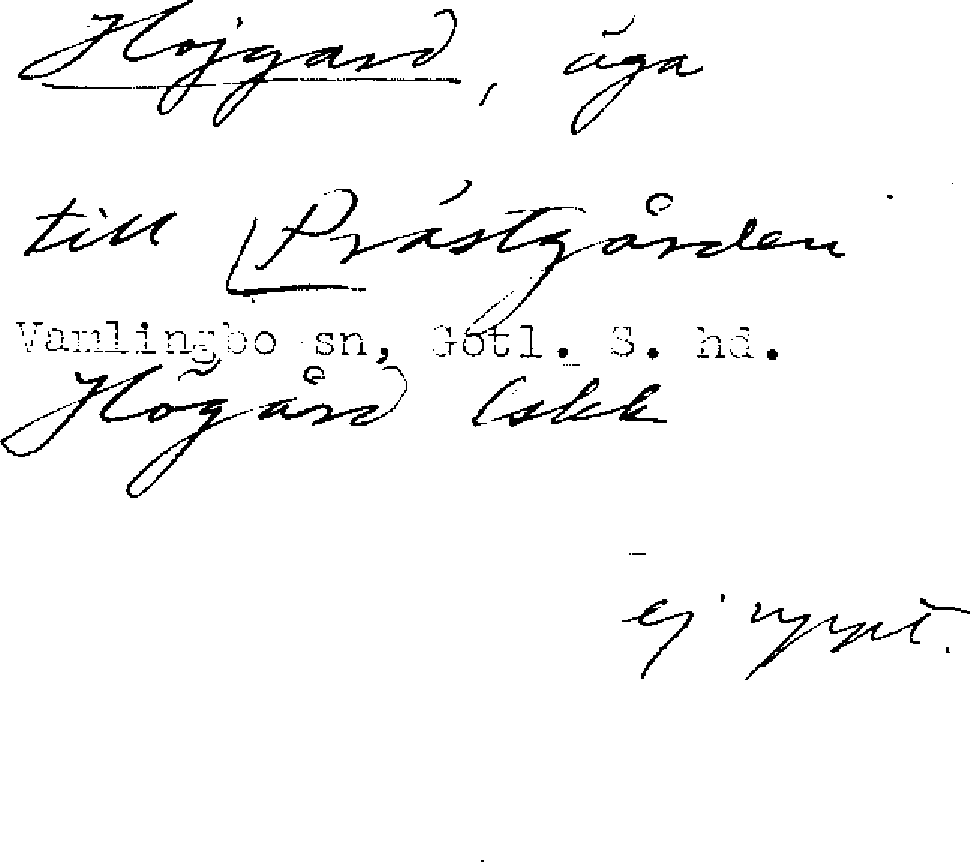 Hojgard, äga
till Prästgården
Vamlingbo sn, Gotl. S. hd.
Högård lskk
ej uppt.